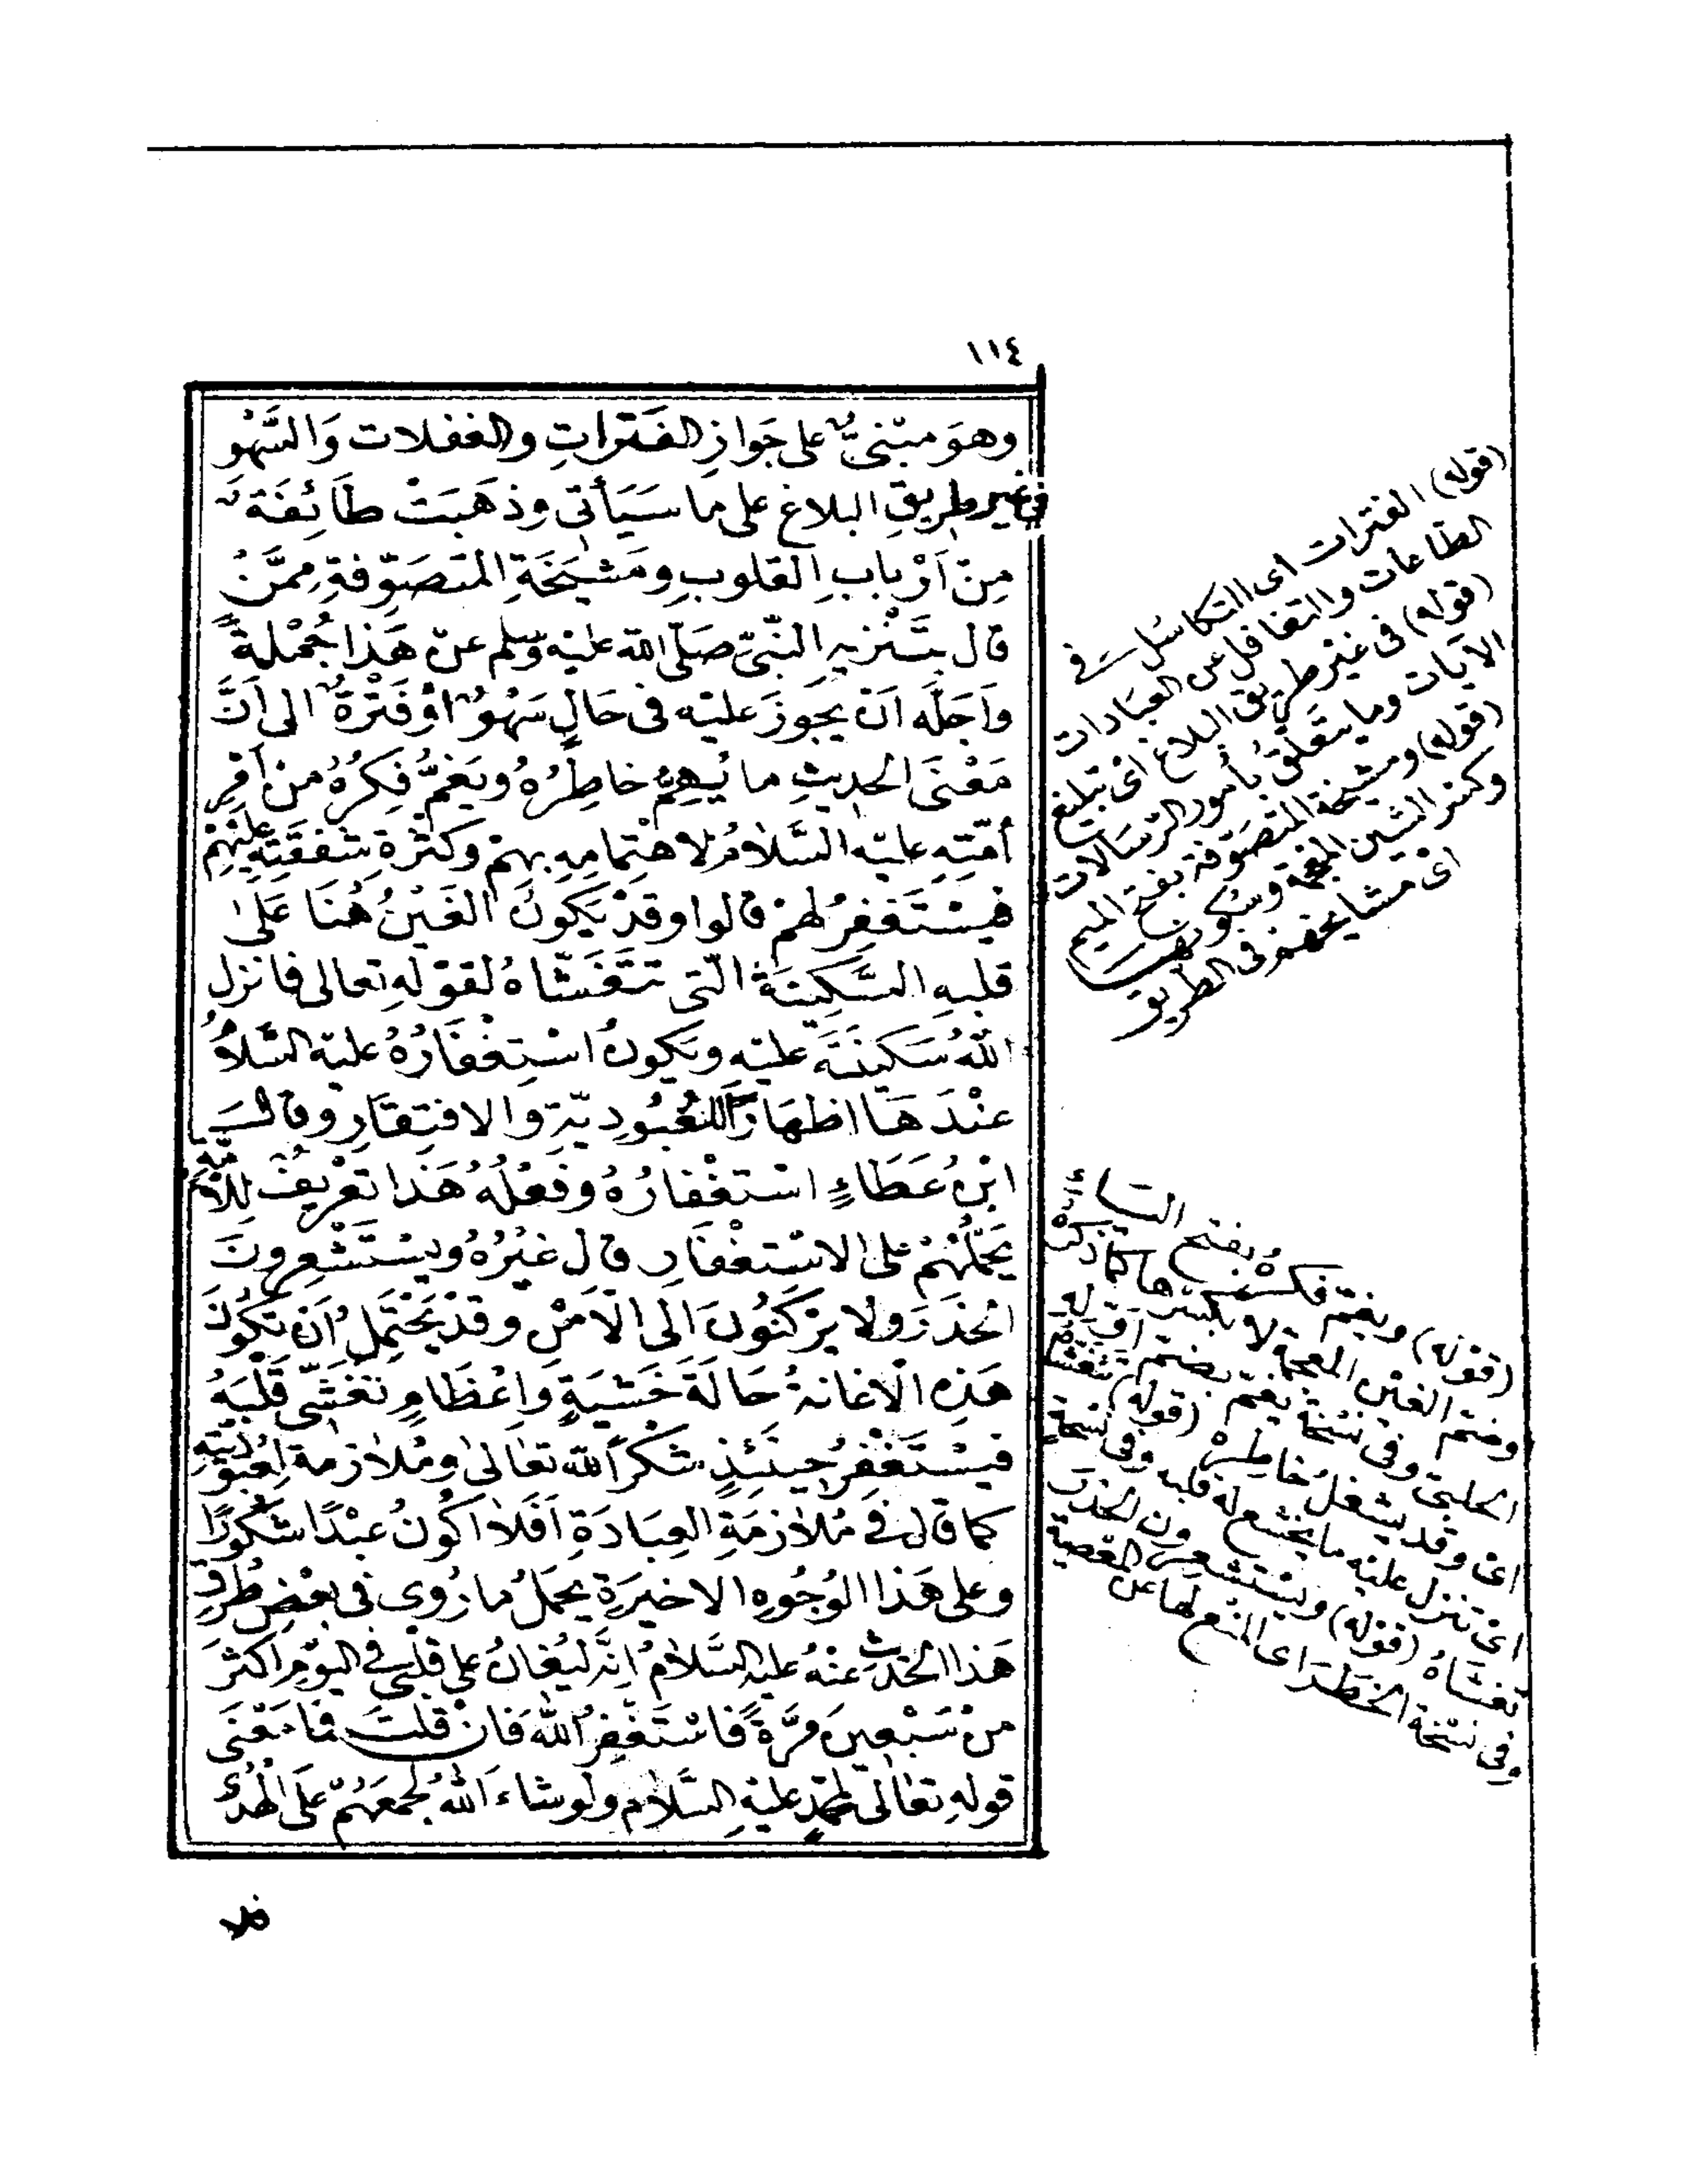 ١١٤
وهوَ مبْنىٌّ على جَوازِ الفَتراتِ والغفلات وَالسَّهْوِ
فى غير طريقِ البلاغ على ما سَيَأتى وذهَبَتْ طَائِفَةٌ
مِنْ اَرْبابِ القلوبِ ومَشْيَخَةِ المتصَوّفةِ مِمَّنْ
قال بتَنْزيهِ النَّبىّ صَلّى الله عليْه وسَّلم عنْ هَذا جُمْلةً
وَاَجَلَّه اَنْ يَجوزَ عليْه فى حَالٍ سَهْوٌ اوْ فَتْرَةٌ الى اَنَّ
مَعْنَى الحديثِ ما يُهِمُّ خاطِرَهُ ويَغمُّ فِكرَهُ من اَمْرِ
اُمّتِهِ عليْه السَّلامُ لاهتِمامِهِ بهمْ وكثْرةِ شفقَتِهِ عليْهِمْ
فيسْتَغفِرُ لهمْ قالوا وقدْ يَكونُ الغَيْنُ هُنَا عَلَىٰ
قلبهِ السَّكِينَةُ الّتى تتَغَشّاهُ لقوْلهِ تعالى فانزل
اللهُ سَكينَتَهُ عليْهِ ويَكونُ اسْتِغْفَارُهُ عليْه السَّلامُ
عنْدَهَا اظهَاراً للعُبُوديّةِ والافتِقَارِ وقالــَ
ابْنُ عَطَاءٍ اسْتغْفارُهُ وفعْلُهُ هَذا تعْريفٌ للاُمّةِ
يَحْملُهُمْ على الاسْتغْفَارِ قال غيْرُهُ ويسْتَشْعِرونَ
الحَذَرَ ولا يرْكَنُونَ الى الاَمْنِ وقدْ يَحْتَمِلُ اَنْ تكُونَ
هَذِهِ الْاغانةُ حَالَةَ خَشْيَةٍ وَاِعْظَامٍ تَغشَّى قَلْبَهُ
فيسْتَغْفِرُ حينَئِذٍ شكْراً لله تعَالىٰ ومُلازمة لعُبُوديّتِهِ
كما قال فى مُلازَمَةِ العِبَادَةِ اَفَلاَ اكُونُ عبْدًا شكُورًا
وعلى هَذا الوُجُوهِ الاخيرَةِ يحمَلُ ما رُوىَ فى بعْضِ طُرُقِ
هَذا الحَديثِ عنْهُ عليْه السَّلامُ اِنَّه ليُغانُ على قلبى فى اليوْمِ اكثرَ
منْ سَبْعينَ مَرَّةً فاسْتَغفِرُ اللهَ فانْ قلتَ فمَا مَعْنَى
قولهِ تعَالى لمحمّدٍ عليْهِ السَّلام ولوْ شاءَ اللهُ لجمَعَهُمْ عَلَى الْهُدَى
(قوله) الفترات اى التكاسُل فى
الطاعات والتغافل عن العبادات
(قوله) فى غيْر طريق البلاغ اى تبليغ
الآيات وما يتعلّق بأمور الرّسالات
(قوله) ومشيخة المتصَوّفة بفتح الميم
وكسْر الشين المعجمة وسكونها
اى مشايخهم فى الطريق
(قوله) ويغمّ فكرهُ بفتح اليـاء
وضمّ الغيْن المعجمة لا بكسْرها كما ذكرهُ
الحلبىّ وفى نسْخة يغمّ بضمّ اوّله
اىْ وقد يشغلُ خاطِرهُ (قوله) تتغشّاه
اىْ تنزل عليْه ما يخشع له قلبه وفى نسْخةٍ
تغشاهُ (قوله) ويسْتشعرون الحذر
وفى نسْخة الحظر اى المنْع لها عن المعْصية
فلا